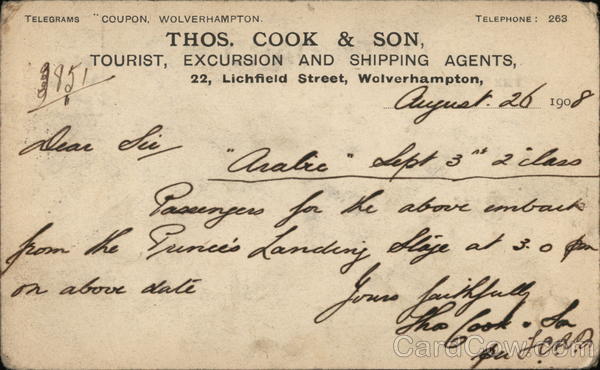 TELEGRAMS "COUPON, WOLVERHAMPTON.
TELEPHONE: 263
THOS. COOK & SON,
TOURIST, EXCURSION AND SHIPPING AGENTS,
22, Lichfield Street, Wolverhampton,
August. 26 1908
Dear Sir
"Arabic" Sept 3rd 2 class
Passengers for the above embark
from the Prince's Landing Stage at 3.0 pm
on above date
Yours faithfully
Thos Cook & Son
per
CardCow.com